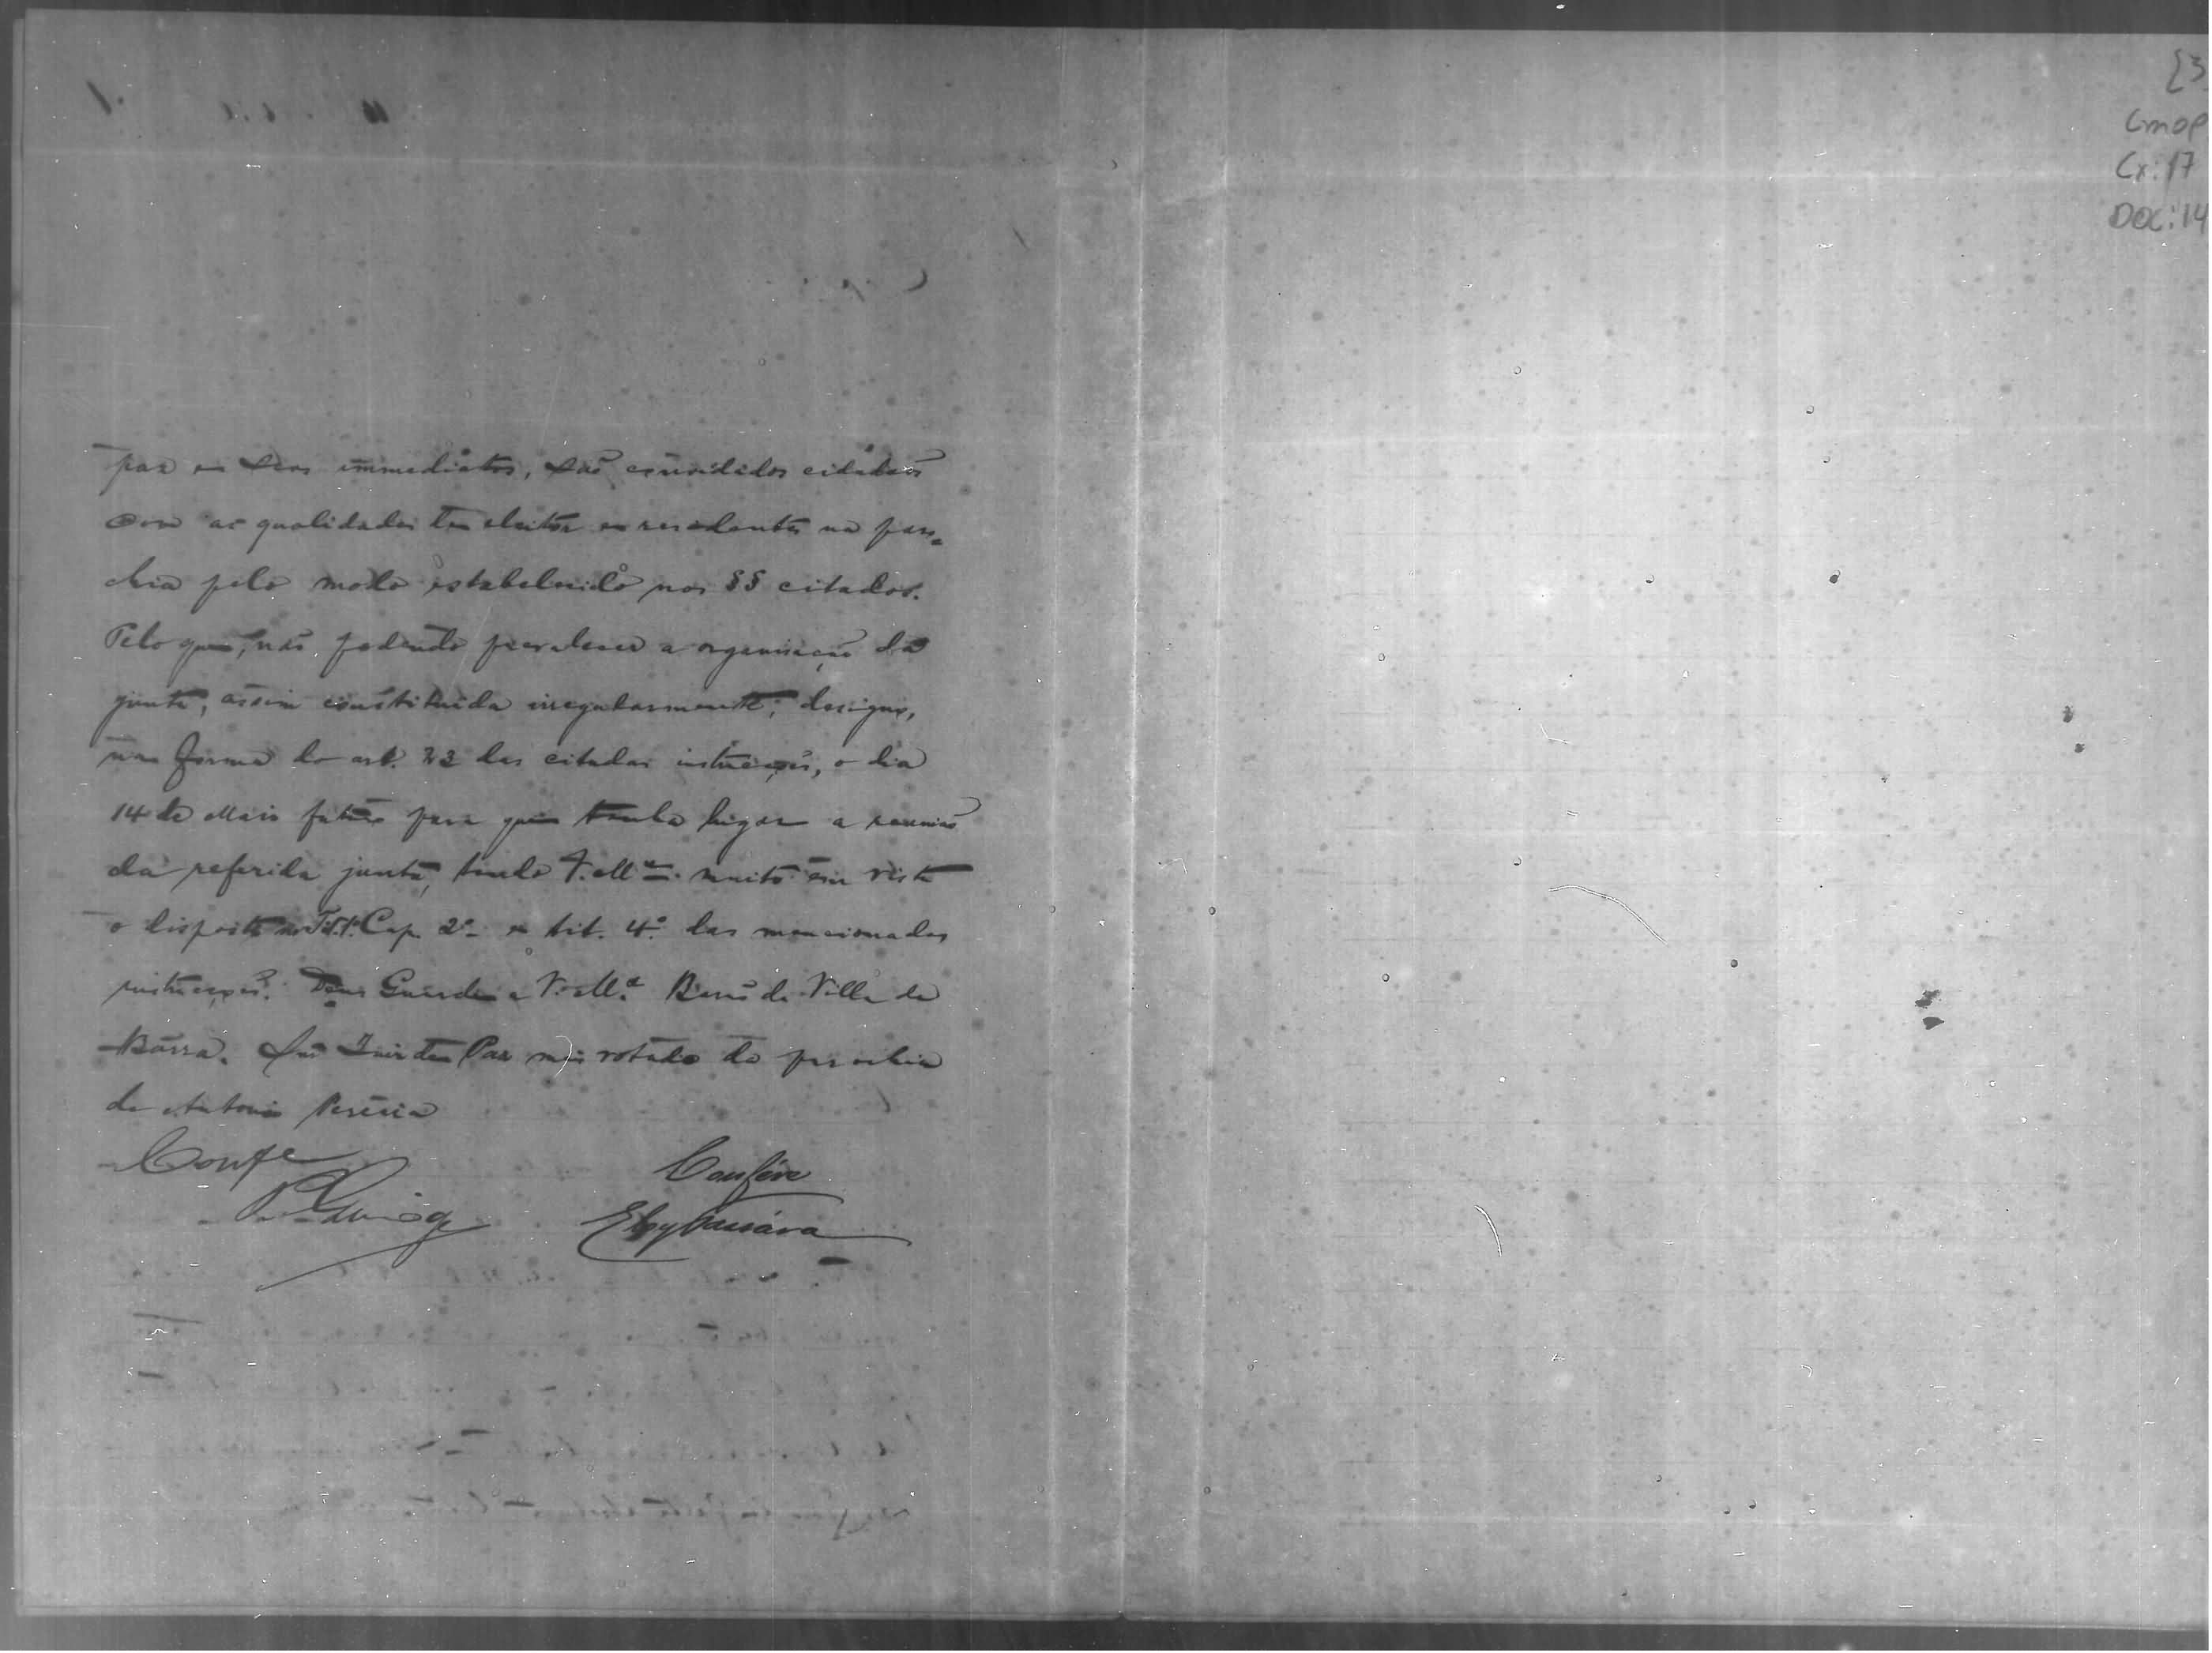 paz e seus immediatos, são convidados cidadãos
com as qualidades de eleitor e residentes na paro=
chia pelo modo estabelecido nos §§ citados.
Pelo que, não podendo prevalecer a organisação da
junta, assim constituida irregularmente, designo,
na forma do art. 23 das citadas instrucções, o dia
14 de Maio futuro para que tenha lugar a reunião
da referida junta, tendo V. M.ce muito em vista
o disposto no Tit. 1.º Cap. 2º e tit. 4º das mencionadas
instrucções. Deus Guarde a V. M.ce Barão da Villa da
Barra. Snr Juiz de Paz mais votado da parochia
de Antonio Pereira
Confe
Confere
Eloy Passára
Cmop
Cx: 17
DOC: 14